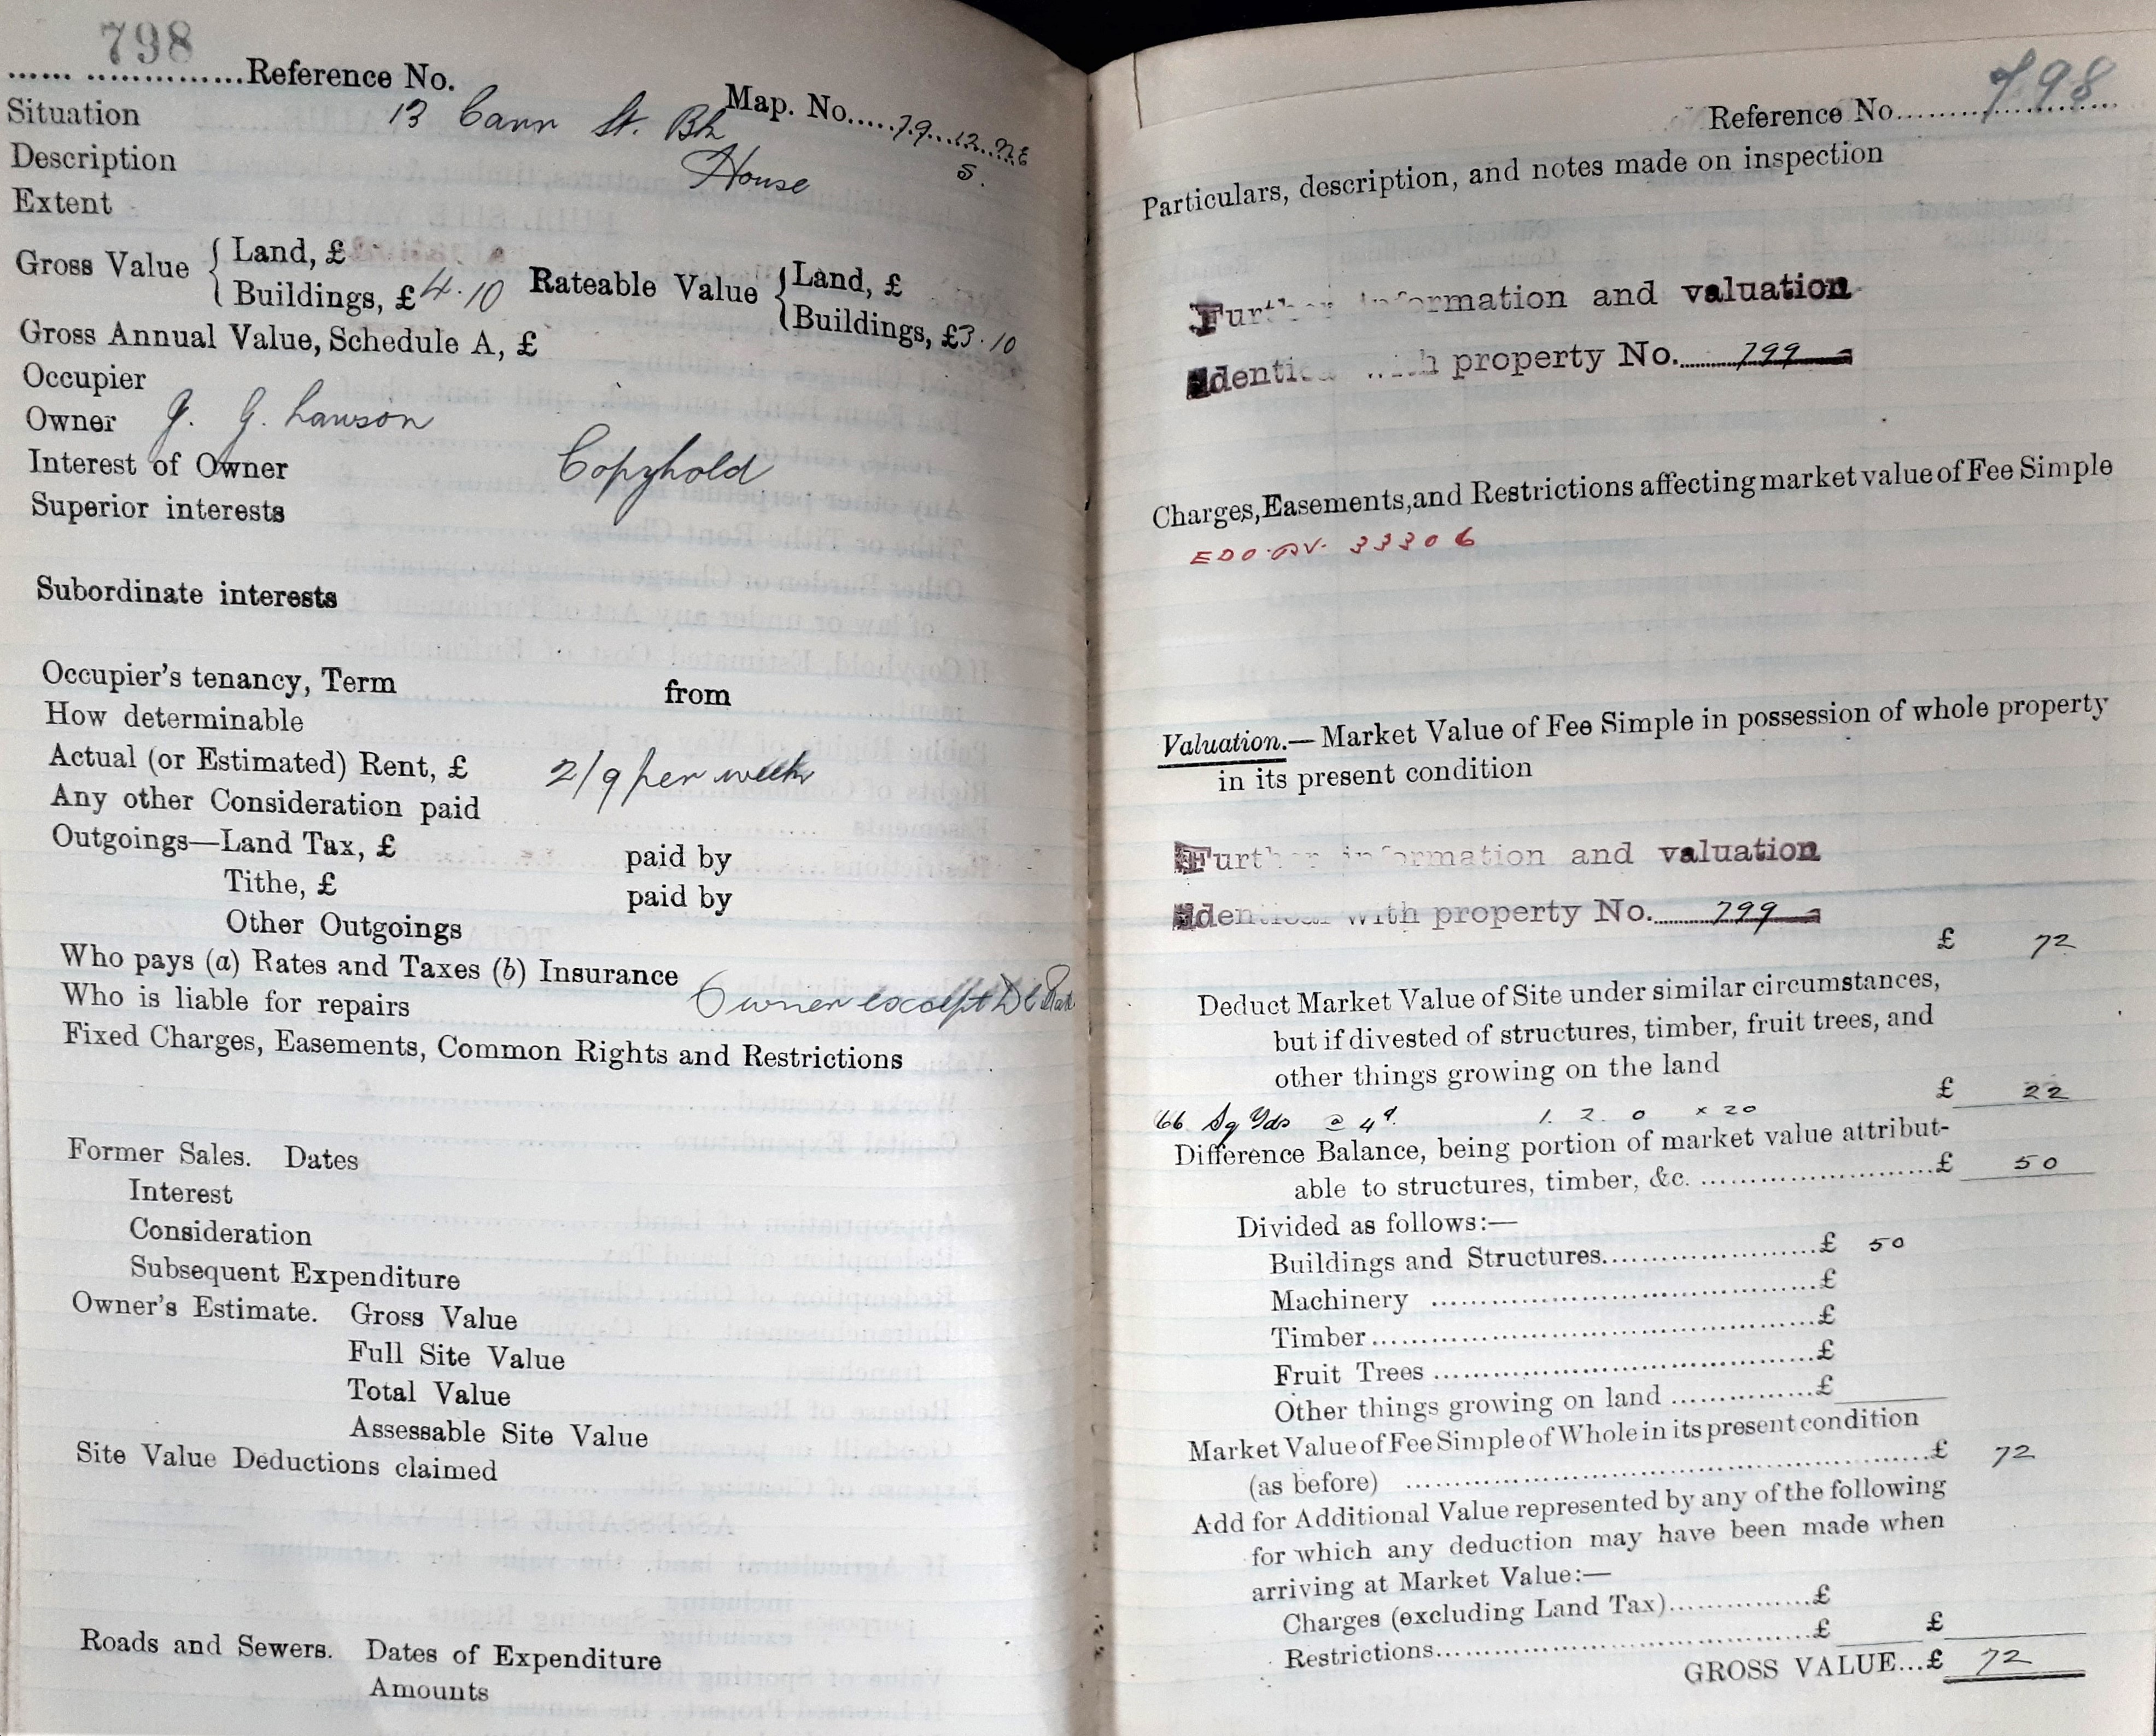 798
...... ...............Reference No.
Map. No.....79..12..NE
5.
Situation 13 Cann St. Bh
Description House
Extent
Gross Value { Land, £
Buildings, £ 4.10
Rateable Value { Land, £
Buildings, £3.10
Gross Annual Value, Schedule A, £
Occupier
Owner G. G. Lawson
Interest of Owner Copyhold
Superior interests
Subordinate interests
Occupier's tenancy, Term from
How determinable
Actual (or Estimated) Rent, £ 2/9 per week
Any other Consideration paid
Outgoings—Land Tax, £ paid by
Tithe, £ paid by
Other Outgoings
Who pays (a) Rates and Taxes (b) Insurance
Who is liable for repairs Owner except
Fixed Charges, Easements, Common Rights and Restrictions
Former Sales. Dates
Interest
Consideration
Subsequent Expenditure
Owner's Estimate. Gross Value
Full Site Value
Total Value
Assessable Site Value
Site Value Deductions claimed
Roads and Sewers. Dates of Expenditure
Amounts
Reference No. 798
Particulars, description, and notes made on inspection
Further information and valuation
Identical with property No. 799
Charges, Easements, and Restrictions affecting market value of Fee Simple
33306
Valuation.—Market Value of Fee Simple in possession of whole property
in its present condition
Further information and valuation
Identical with property No. 799
£ 72
Deduct Market Value of Site under similar circumstances,
but if divested of structures, timber, fruit trees, and
other things growing on the land
£ 22
66 Sq Yds @ 4d. 1. 2. 0 x 20
Difference Balance, being portion of market value attribut-
able to structures, timber, &c. ........................£ 50
Divided as follows:—
Buildings and Structures......................£ 50
Machinery ........................................£
Timber.............................................£
Fruit Trees ......................................£
Other things growing on land ...............£
Market Value of Fee Simple of Whole in its present condition
(as before) ......................................................£ 72
Add for Additional Value represented by any of the following
for which any deduction may have been made when
arriving at Market Value:—
Charges (excluding Land Tax)...............£
Restrictions........................................£ £
GROSS VALUE...£ 72